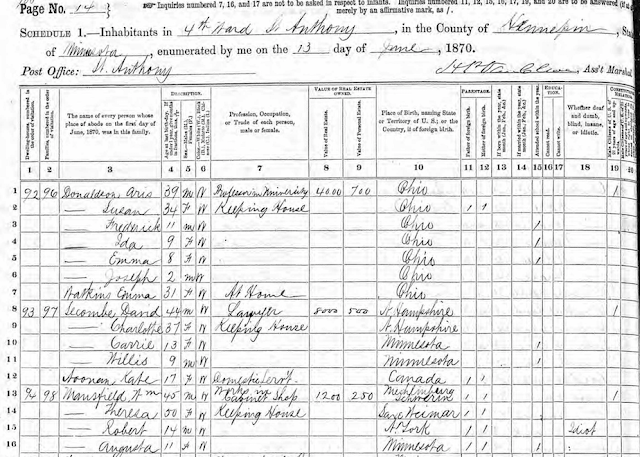 Page No. 14
Inquiries numbered 7, 16, and 17 are not to be asked in respect to infants. Inquiries numbered 11, 12, 15, 16, 17, 19, and 20 are to be answered (if at all)
merely by an affirmative mark, as /.
SCHEDULE 1.—Inhabitants in 4th Ward St Anthony, in the County of Hennepin, State
of Minnesota, enumerated by me on the 13 day of June, 1870.
Post Office: St. Anthony Ass't Marshal
DESCRIPTION. VALUE OF REAL ESTATE OWNED. PARENTAGE. EDUCATION.
The name of every person whose place of abode on the first day of June, 1870, was in this family.
Profession, Occupation, or Trade of each person, male or female.
Value of Real Estate.
Place of Birth, naming State or Territory of U. S.; or the Country, if of foreign birth.
Father of foreign birth.
Mother of foreign birth.
Attended school within the year.
Cannot read.
Cannot write.
Whether deaf and dumb, blind, insane, or idiotic.
1 2 3 4 5 6 7 8 9 10 11 12 13 14 15 16 17 18 19 20
1 92 96 Donaldson Aris 39 M W Professor in University 4000 700 Ohio 1
2 — Susan 34 F W Keeping House Ohio 1 1
3 — Frederick 11 M W Ohio 1
4 — Ida 9 F W Ohio 1
5 — Emma 8 F W Ohio 1
6 — Joseph 2 M W Ohio
7 Watkins Emma 31 F W At Home Ohio
8 93 97 Secombe David 44 M W Lawyer 8000 500 N. Hampshire 1
9 — Charlotte 37 F W Keeping House N. Hampshire
10 — Carrie 13 F W Minnesota 1
11 — Willis 9 M W Minnesota 1
12 Noonan Kate 17 F W Domestic Servt. Canada 1 1
13 94 98 Mansfield Wm 45 M W Works in Cabinet Shop 1200 250 Mecklenburg Schwerin 1 1 1
14 — Theresa 50 F W Keeping House Saxe Weimar 1 1
15 — Robert 14 M W N. York 1 1 Idiot
16 — Augusta 11 F W Minnesota 1 1 1